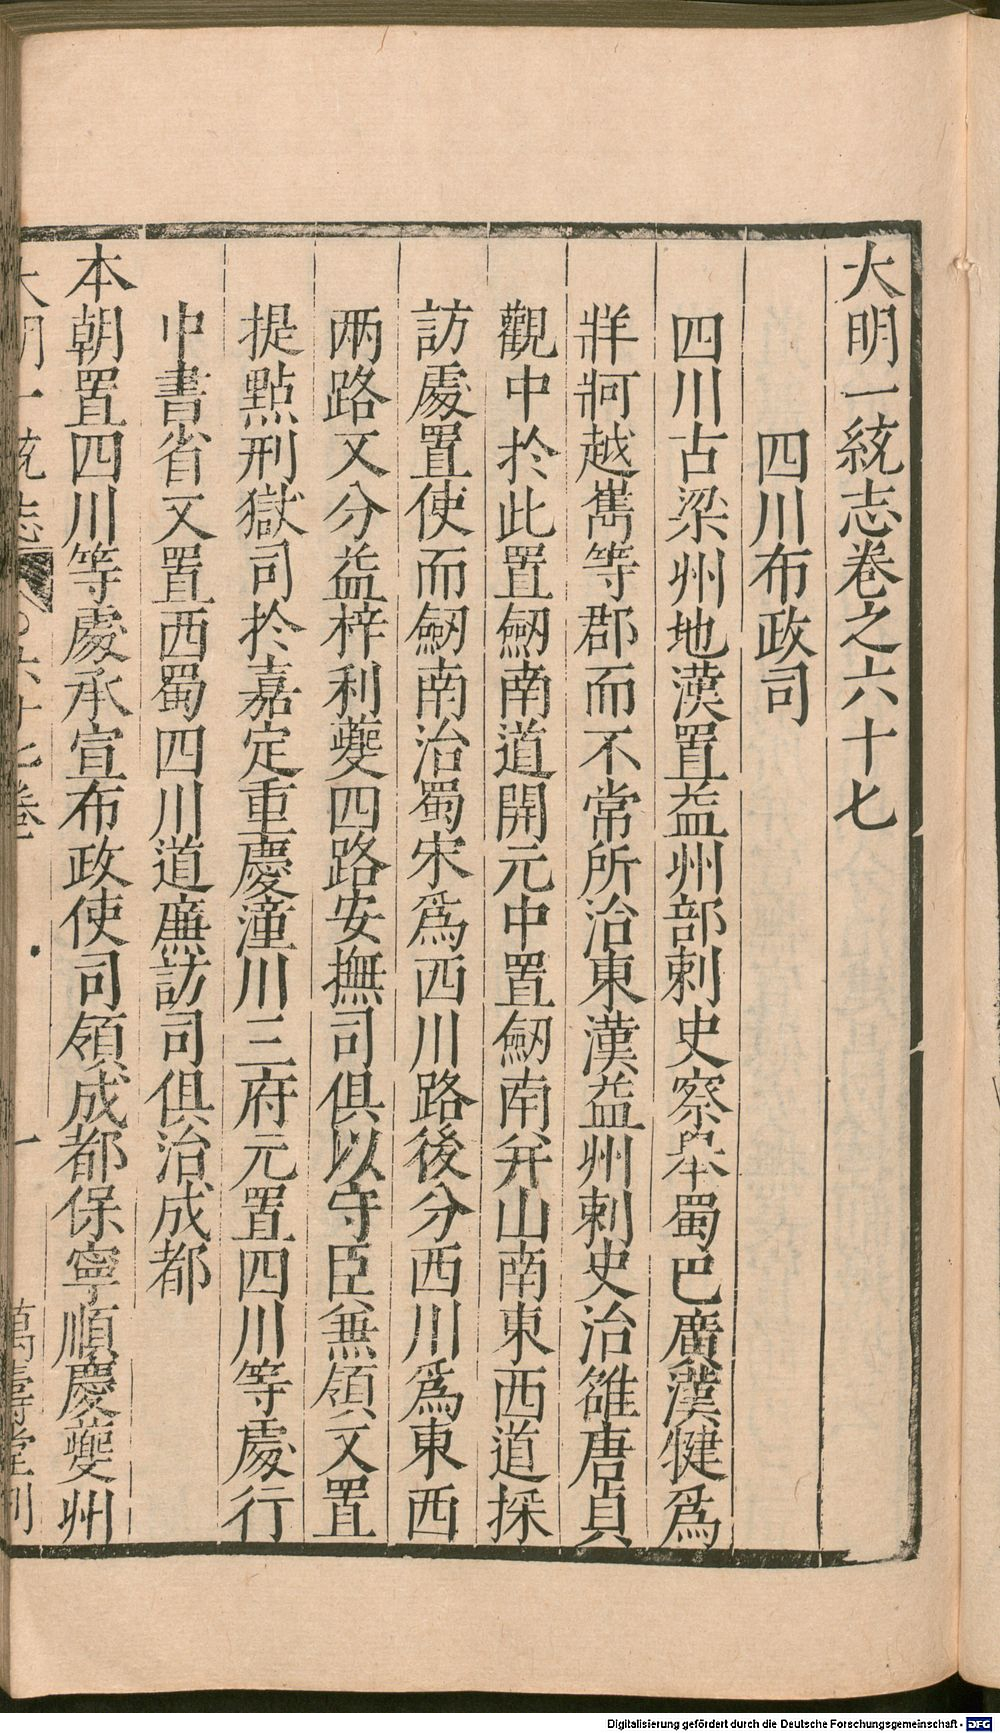 大明一統志卷之六十七
四川布政司
四川古梁州地漢置益州部刺史察舉蜀巴廣漢犍爲
牂牁越巂等郡而不常所治東漢益州刺史治雒唐貞
觀中於此置劒南道開元中置劒南并山南東西道採
訪處置使而劒南治蜀宋爲西川路後分西川爲東西
两路又分益梓利夔四路安撫司俱以守臣兼領又置
提點刑獄司於嘉定重慶潼川三府元置四川等處行
中書省又置西蜀四川道廉訪司俱治成都
本朝置四川等處承宣布政使司領成都保寧順慶夔州
大明一統志 六十七卷 一 萬壽堂刊
Digitalisierung gefördert durch die Deutsche Forschungsgemeinschaft - DFG